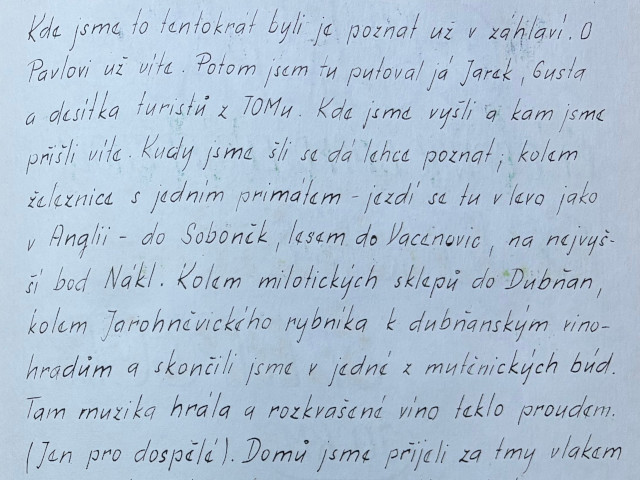 Kde jsme to tentokrát byli je poznat už v záhlaví. O
Pavlovi už víte. Potom jsem tu putoval já Jarek, Gusta
a desítka turistů z TOMu. Kde jsme vyšli a kam jsme
přišli víte. Kudy jsme šli se dá lehce poznat; kolem
železnice s jedním primátem - jezdí se tu vlevo jako
v Anglii - do Soboněk, lesem do Vacenovic, na nejvyš-
ší bod Nákl. Kolem milotických sklepů do Dubňan,
kolem Jarohněvického rybníka k dubňanským vino-
hradům a skončili jsme v jedné z mutěnických búd.
Tam muzika hrála a rozkvašené víno teklo proudem.
(Jen pro dospělé). Domů jsme přijeli za tmy vlakem